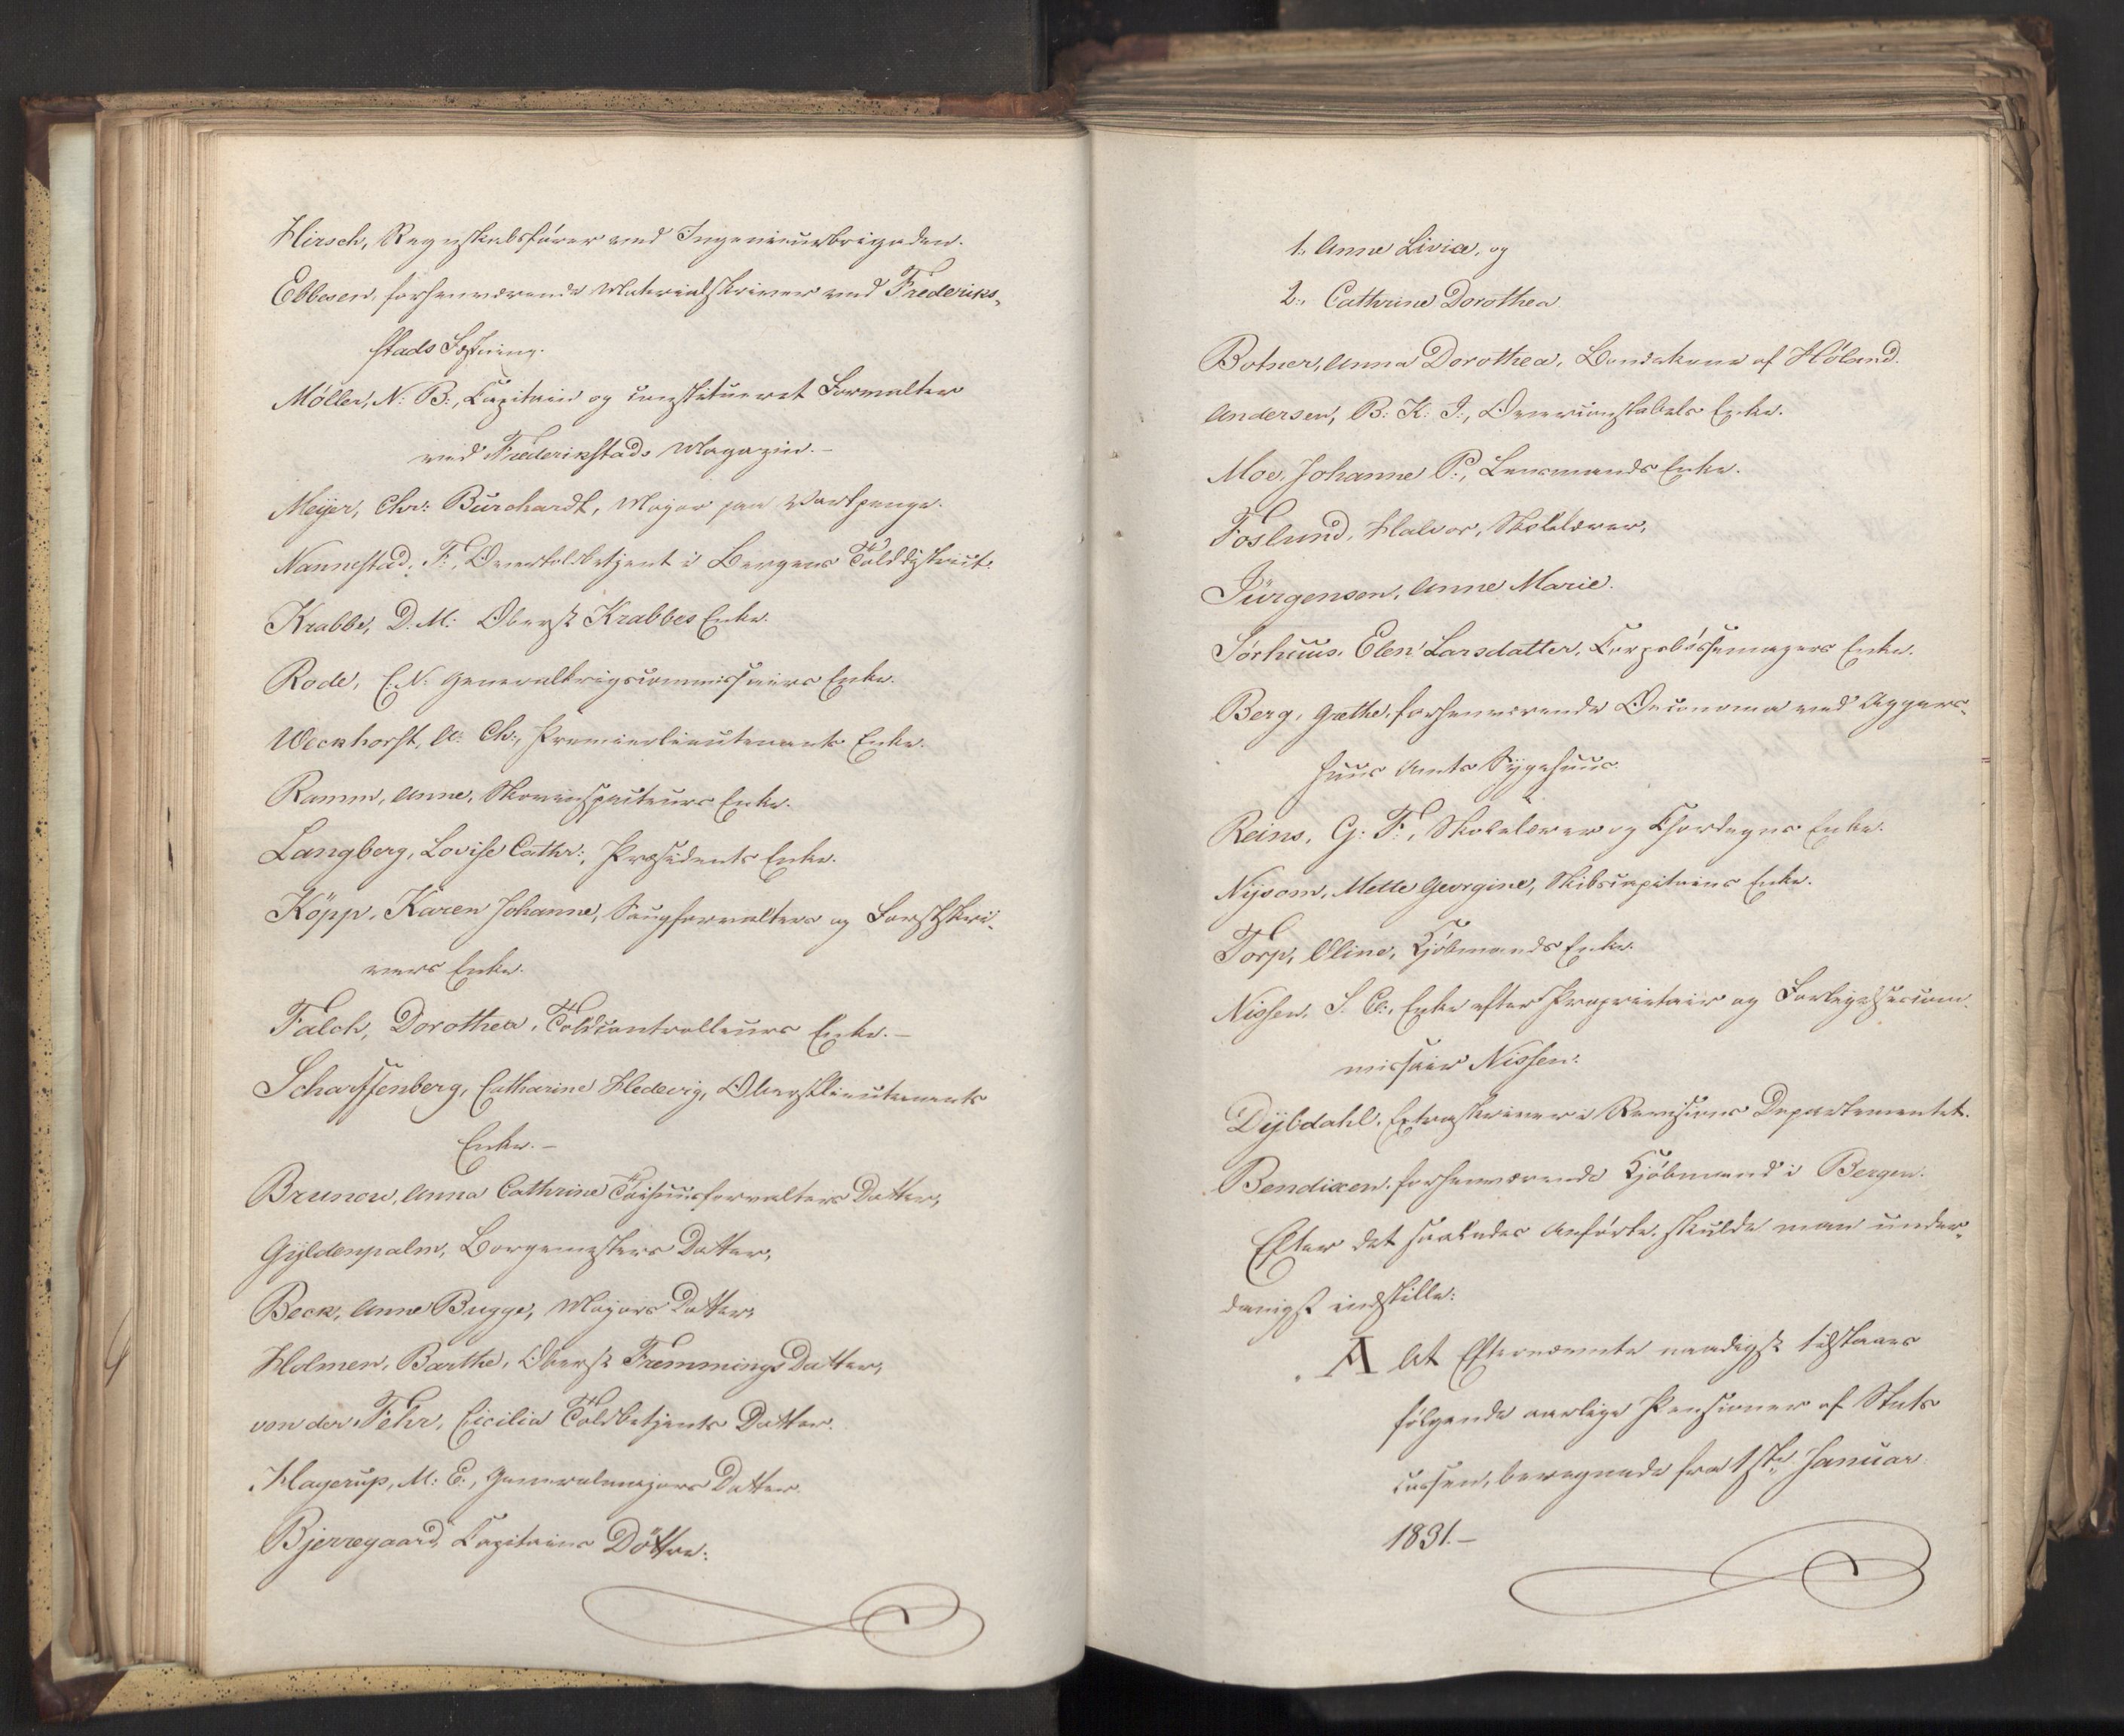 Hirsch, Regnskabsfører ved Ingenieurbrigaden.
Ebbesen, forhenværende Materialskriver ved Frederiks-
stads Fæstning.
Møller, N: B:, Capitain og constitueret Forvalter
ved Frederikstads Magazin.-
Meyer, Chr: Burchardt, Major paa Vartpenge.
Nannestad, F:, Overtoldbetjent i Bergens Tolddistrict.
Krabbe, D. M: Oberst Krabbes Enke.
Rode, C. N: Generalkrigscommissairs Enke.
Weckhorst, A: Ch:, Premierlieutenants Enke.
Ramm, Anne, Skovinspecteurs Enke.
Langberg, Lovise Cathr:, Præsidents Enke.
Köpp, Karen Johanne, Saugforvalters og Forstskri-
vers Enke.
Falch, Dorothea, Toldcontrolleurs Enke.-
Scharffenberg, Catharine Hedevig, Oberstlieutenants
Enke.-
Brunow, Anna Cathrine Tøihuusforvalters Datter,
Gyldenpalm, Borgemesters Datter,
Beck, Anne Bugge, Majors Datter,
Holmen, Barthe, Oberst Fremmings Datter,
von der Fehr, Cicilia Toldbetjents Datter.
Hagerup, M: E:, Generalmajors Datter.
Bjerregaard, Capitains Døttre:
1, Anne Livia, og
2, Cathrine Dorothea
Botner, Anna Dorothea, Bondekone af Høland.
Andersen, B: K: J:, Overconstabels Enke.
Moe, Johanne P:, Lensmands Enke.
Foslund, Halvor, Skolelærer,
Jürgensen, Anne Marie.
Sørhuus, Elen Larsdatter, Corpsbøssemagers Enke.
Berg, Grethe, forhenværende Oeconoma ved Aggers-
huus Amts Sygehuus.
Reins, G: F:, Skolelærer og Chordegns Enke.
Nysom, Mette Georgine, Skibscapitains Enke.
Torp, Oline, Kjøbmands Enke.
Nissen, S. C:, Enke efter Proprietair og Forligelsescom-
missair Nissen.
Dybdahl, Extraskriver i Revisions Departementet.
Bendixen, forhenværende Kjøbmand i Bergen.
Efter det saaledes Anførte, skulde man under-
danigst indstille:
A At Efternævnte naadigst tilstaaes
følgende aarlige Pensioner af Stats
cassen, beregnede fra 1ste Januar
1831.-